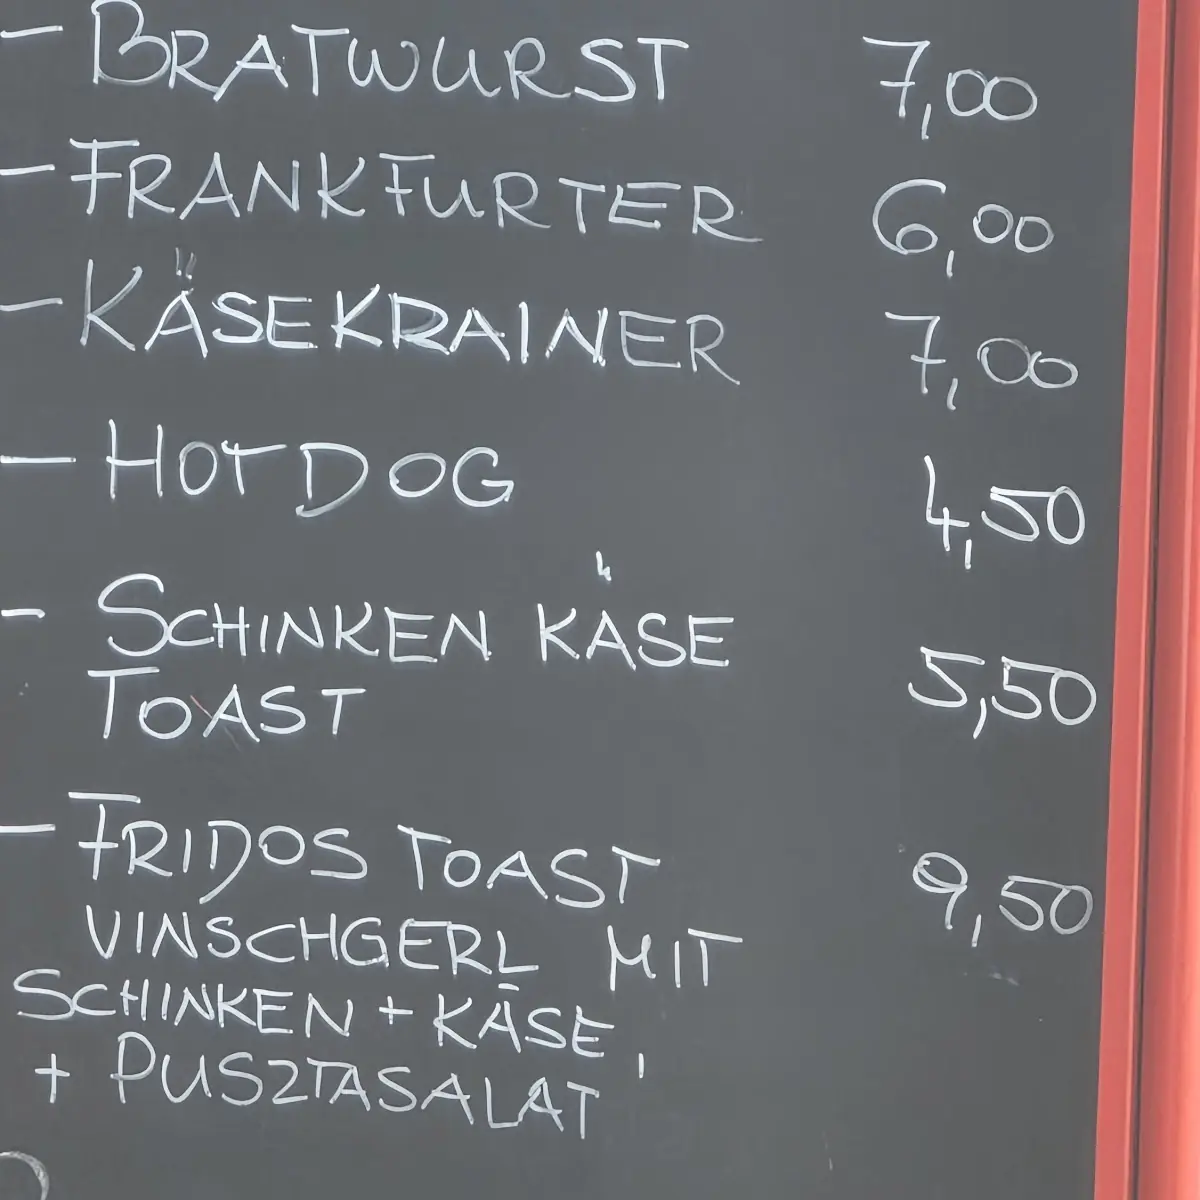 - BRATWURST 7,00
- FRANKFURTER 6,00
- KÄSEKRAINER 7,00
- HOTDOG 4,50
- SCHINKEN KÄSE
TOAST 5,50
- FRIDOS TOAST 9,50
VINSCHGERL MIT
SCHINKEN + KÄSE,
+ PUSZTASALAT